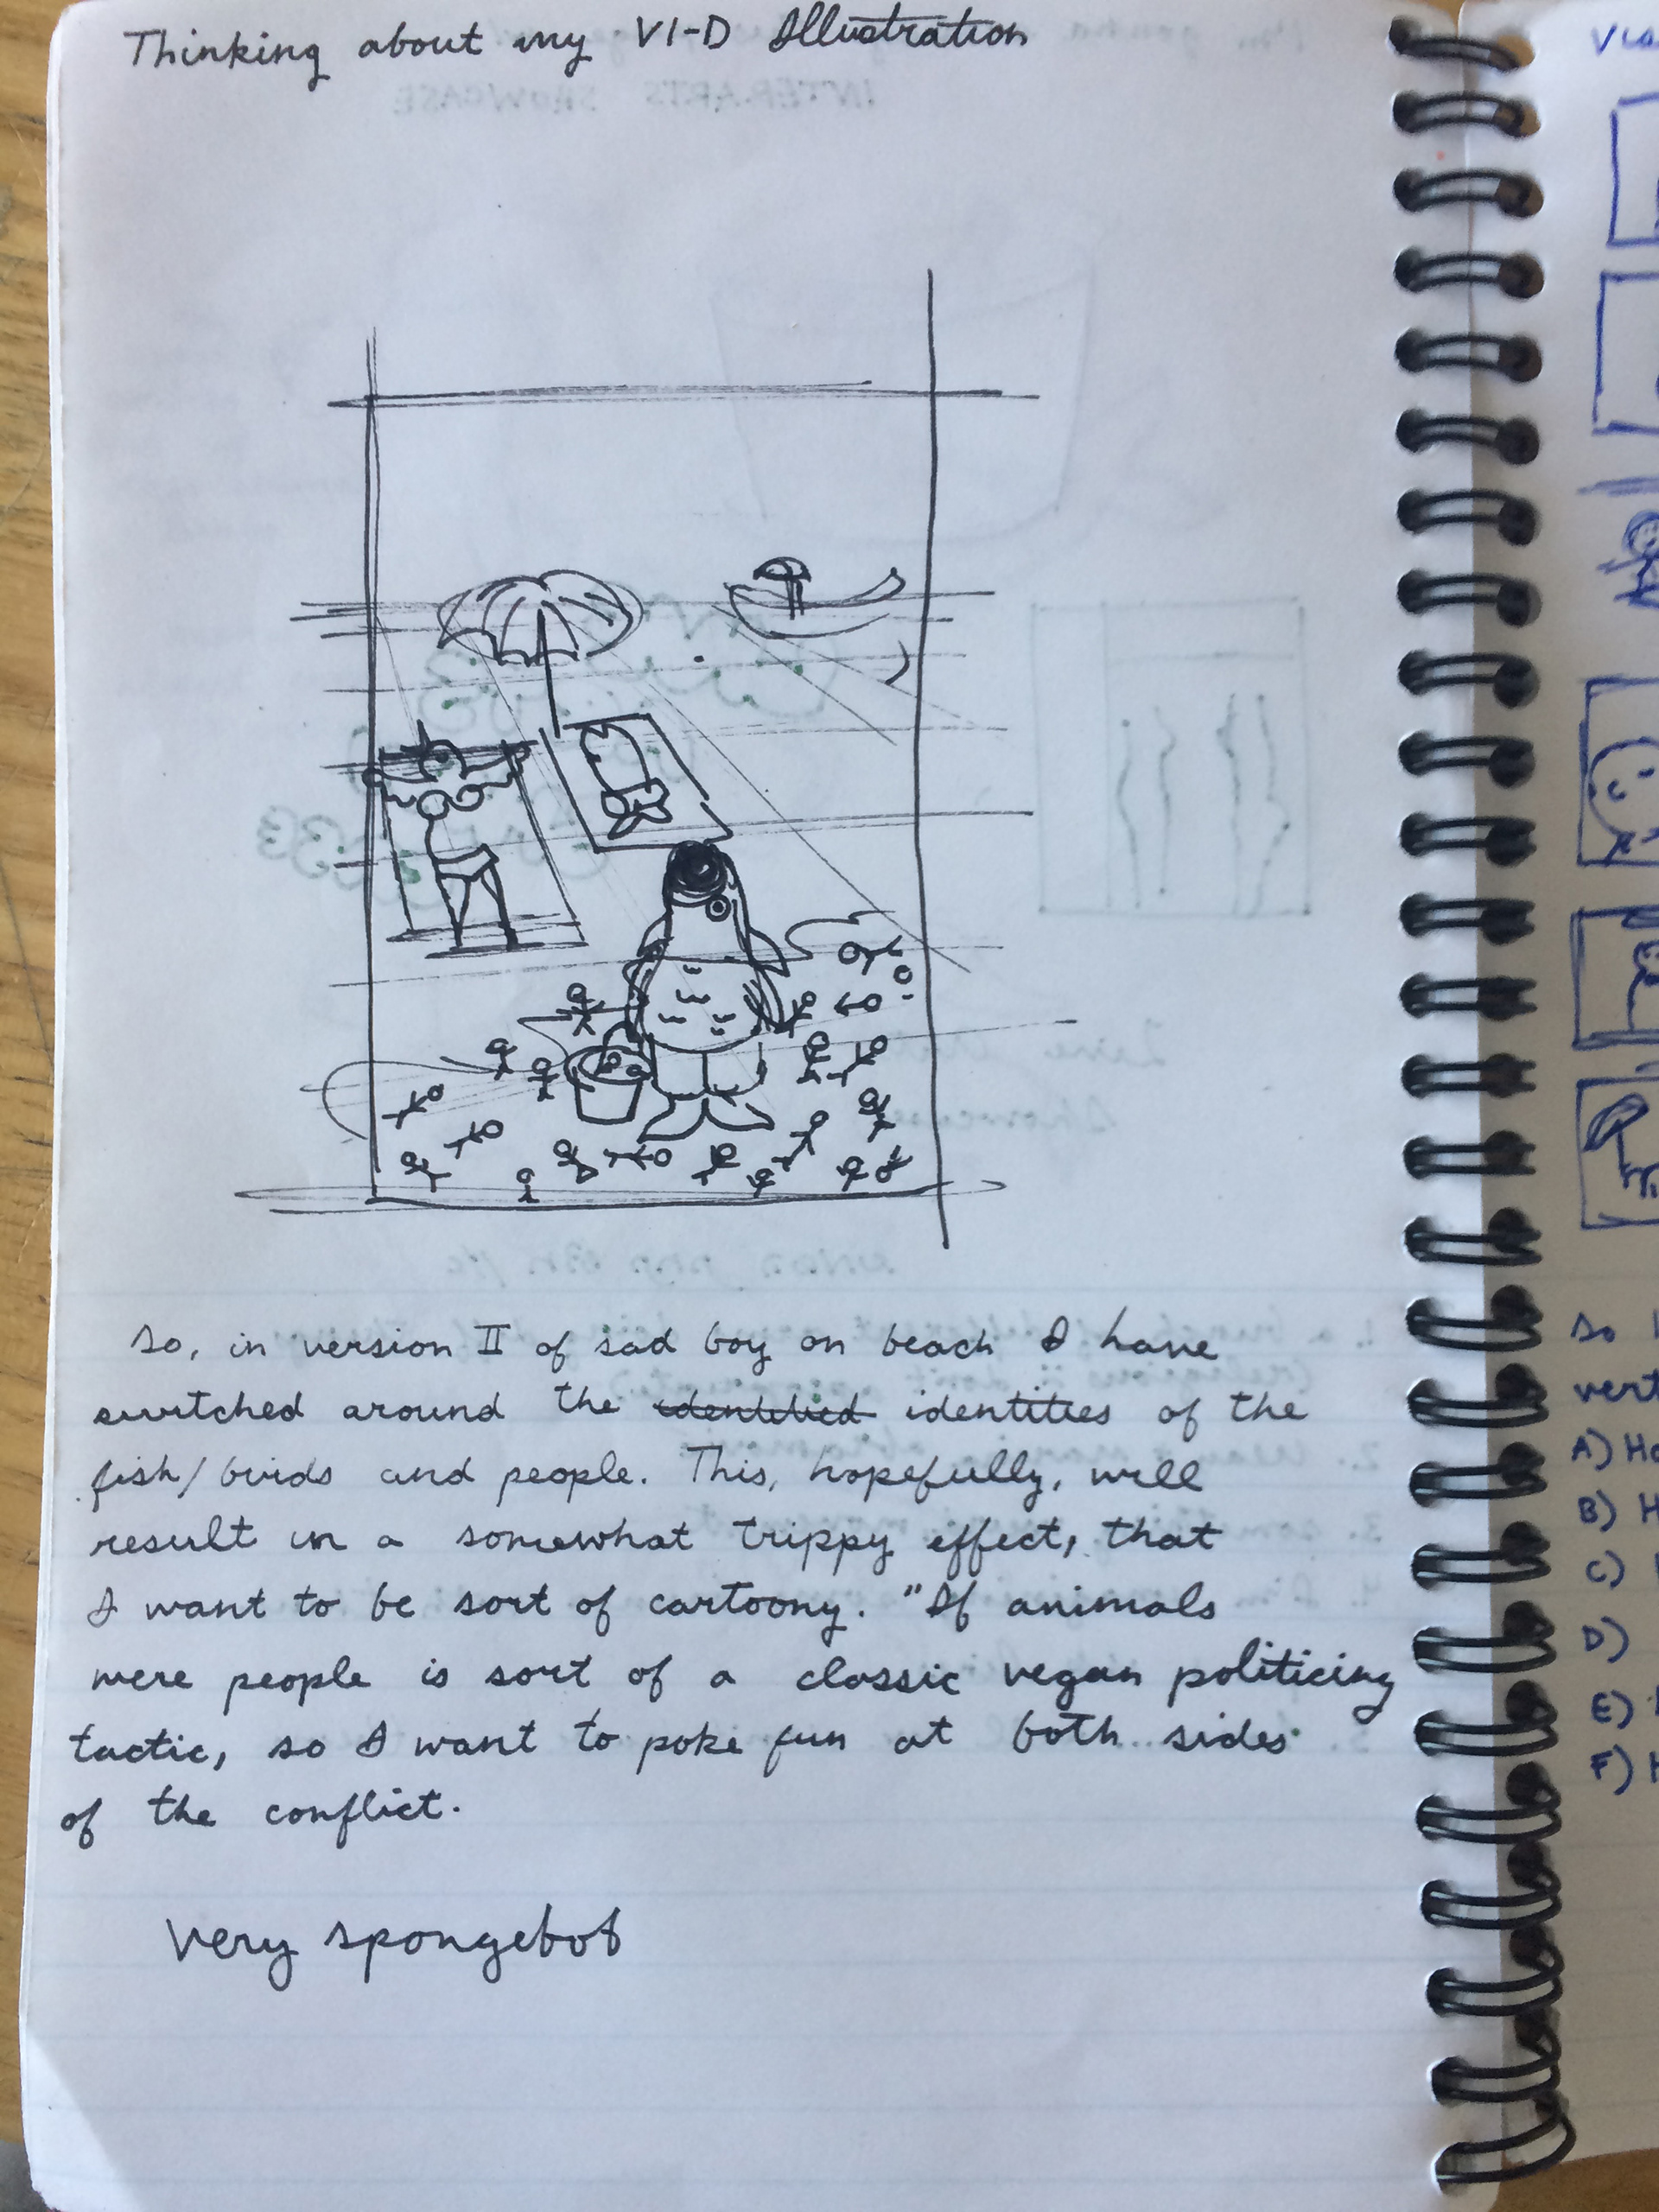 Thinking about my VI-D Illustration
INTERARTS SHOWCASE
So, in version II of sad boy on beach I have
switched around the identities of the
fish/birds and people. This, hopefully, will
result in a somewhat trippy effect, that
I want to be sort of cartoony. "If animals
were people is sort of a classic vegan politicing
tactic, so I want to poke fun at both sides
of the conflict.
very spongebob
so
vert
A) Ho
B) H
C)
D)
E)
F) H